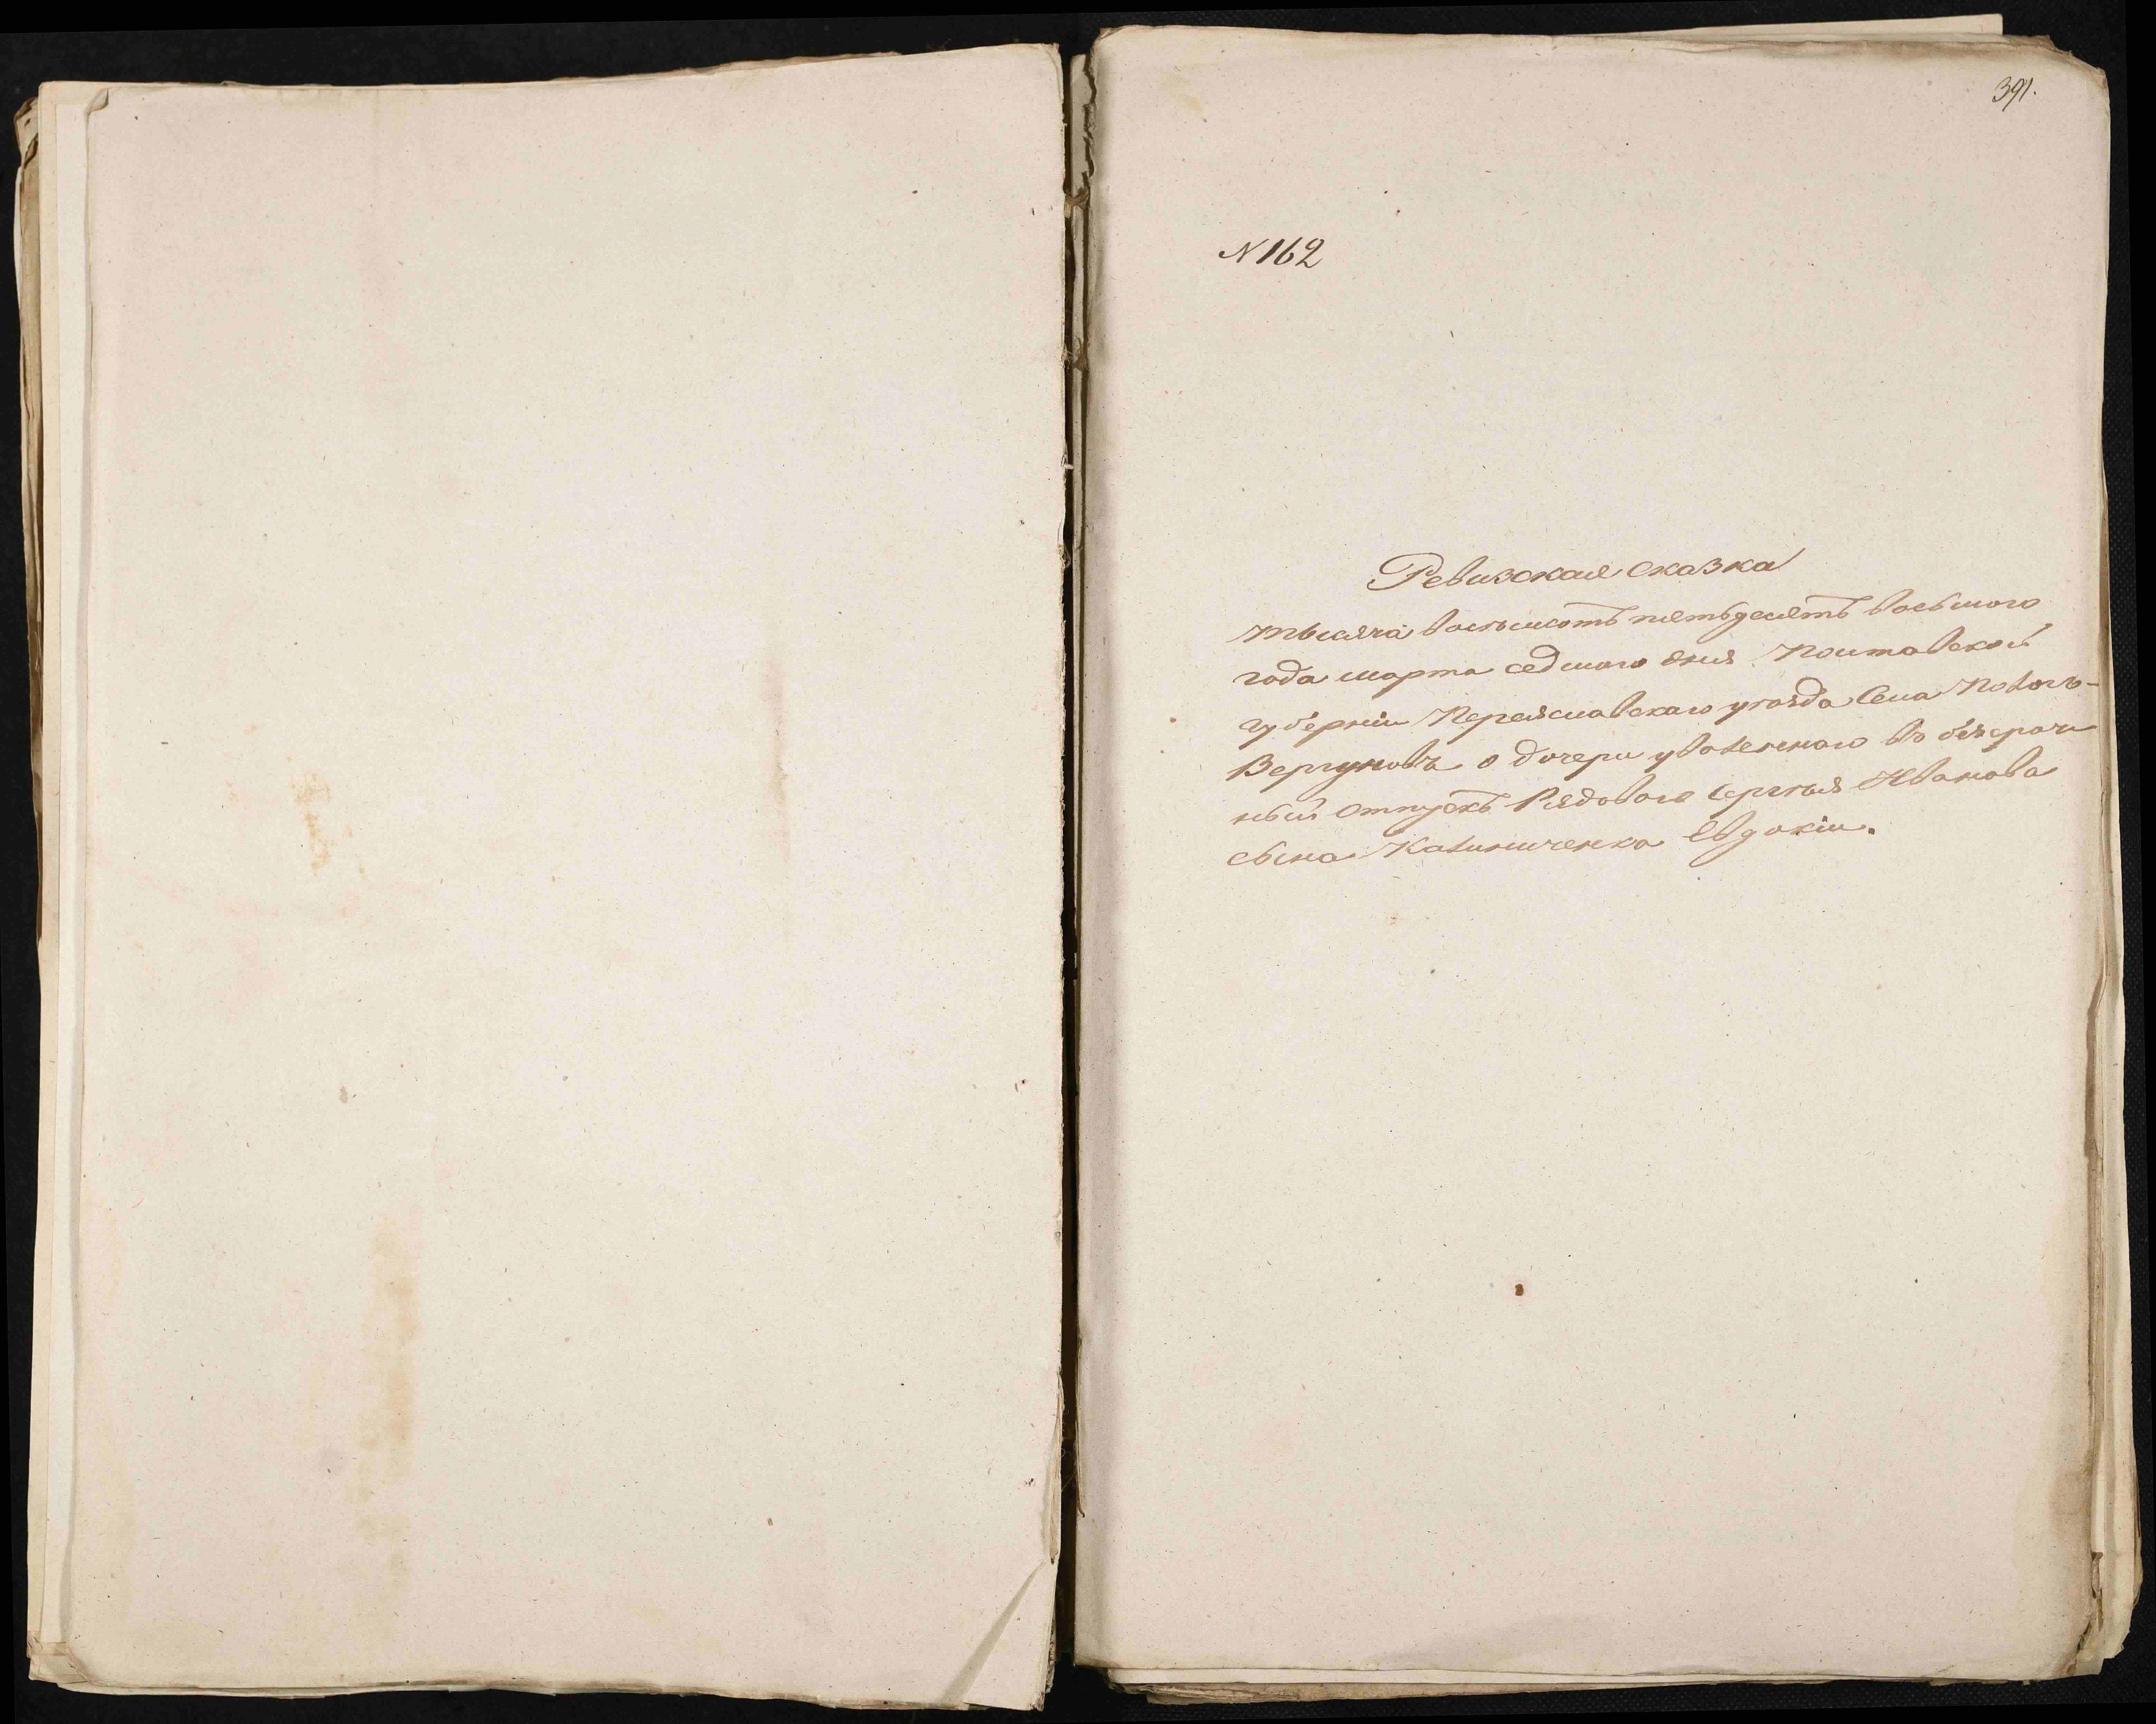 391.
N 162
Ревизская сказка
тысяча восьмсотъ пятьдесятъ восьмого
года марта седмого дня Полтавской
губерніи Переяславскаго уѣзда Села Пологъ-
Вергуновъ о дочери уволеннаго въ безсроч
ный отпускъ Рядового Сергѣя Иванова
сына Калиниченка Евдокіи.